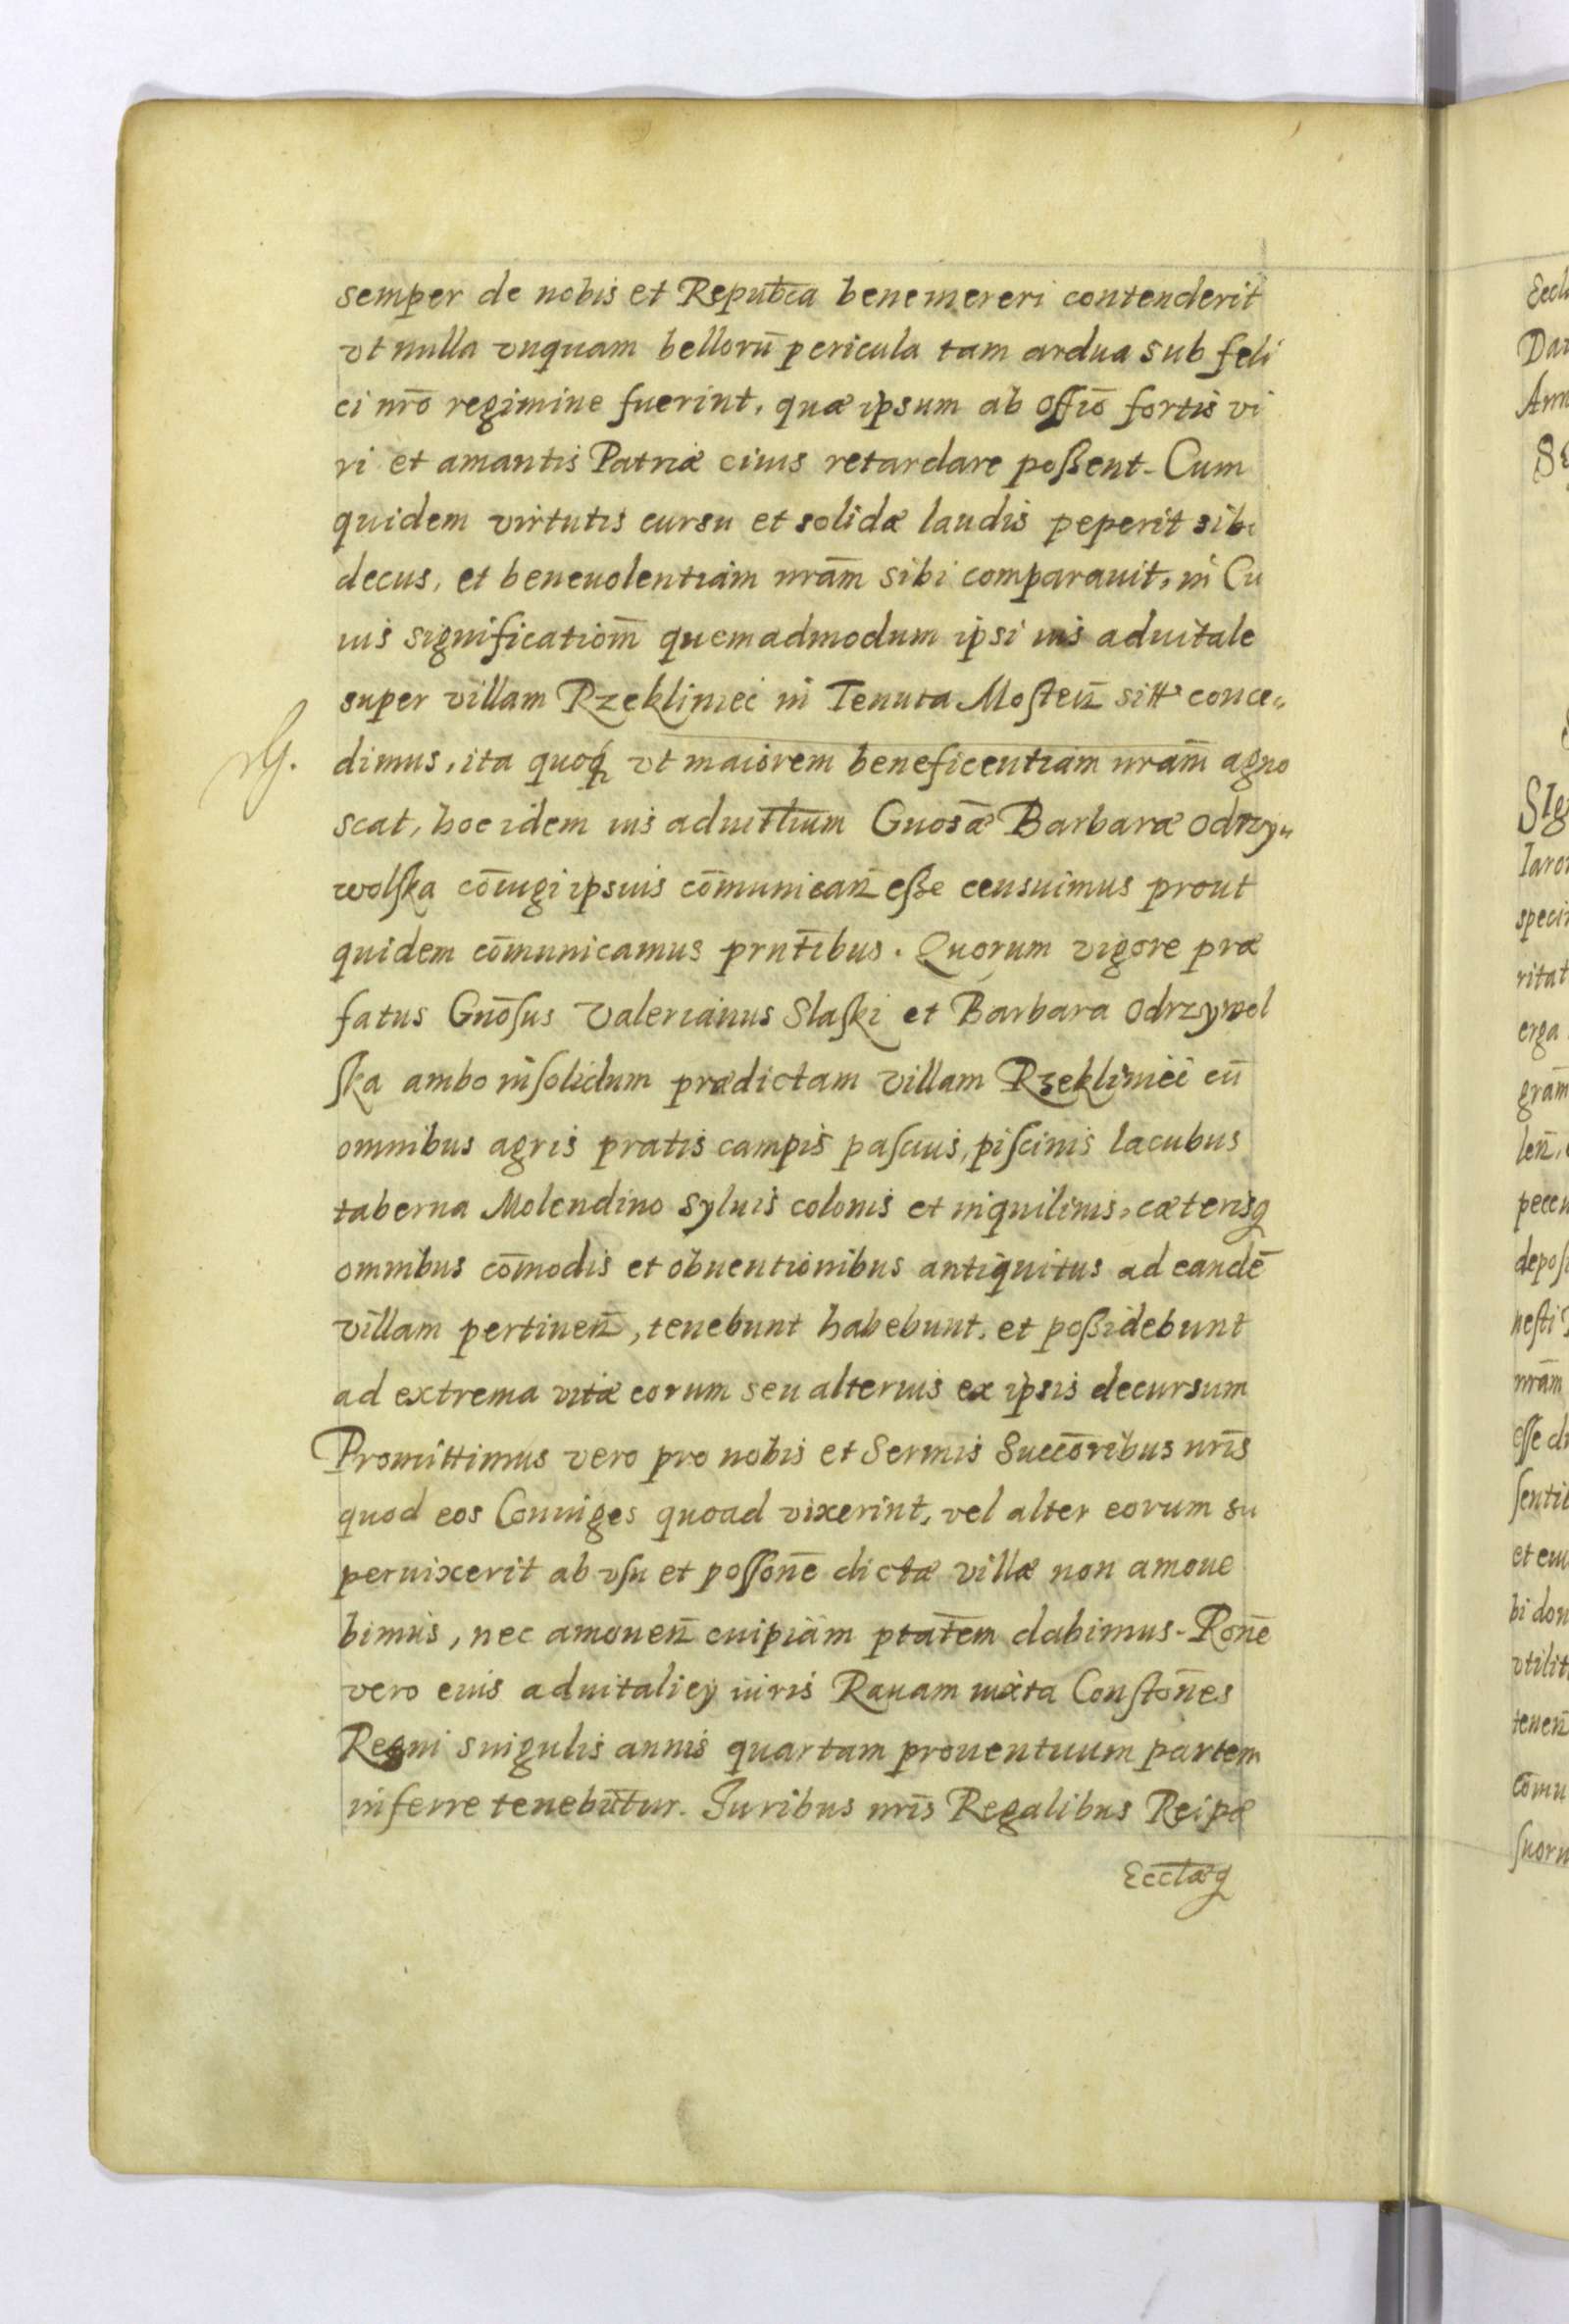 semper de nobis et Repub̄ca benemereri contenderit
vt nulla vnquam bellorū pericula tam ardua sub feli
ci nr̄o regimine fuerint, quæ ipsum ab offi̅o fortis vi
ri et amantis Patriæ eius retardare poßent. Cum
quidem virtutis cursu et solidæ laudis peperit sibi
decus, et beneuolentiam nrām sibi comparauit, in Cu
ius significatiom̄ quemadmodum ipsi ius aduitale
super villam Rzekliniec in Tenuta Mosteñ sitt conce„
dimus, ita quoq̨ vt maiorem beneficentiam nram̄ agno
scat, hoc idem ius aduitlium̄ Gnosǣ Barbaræ Odrzy„
wolſka cōiugi ipsius cōmunicañ eſse censuimus prout
quidem cōmunicamus prnt̄ibus. Quorum vigore præ
fatus Gnōſus Valerianus Slaſki et Barbara Odrzywol
ſka ambo inſolidum prædictam villam Rzekliniec cū
omnibus agris pratis campis paſcuis, piſcinis lacubus
taberna Molendino syluis colonis et inquilinis, cæterisq̨
omnibus cōmodis et obuentionibus antiquitus ad eandē
villam pertineñ, tenebunt habebunt, et poßidebunt
ad extrema vitæ eorum seu alterius ex ipsis decursum
Promittimus vero pro nobis et Sermis Succōribus nrīs
quod eos Coniuges quoad vixerint, vel alter eorum su
peruixerit ab vſu et poſſonē dictæ villæ non amoue
bimus, nec amoueñ cuipiam ptatem̄ dabimus. Ronē
vero eius aduitalicy iuris Rauam iuxta Conſtōnes
Regni singulis annis quartam prouentuum partem
inferre tenebūtur. Iuribus nrīs Regalibus Reipæ
Ecctæq̨
Eccl
Dat
Ann
SIg
Iaro
speci
ritat
erga
gram̄
leñ,
pecen
depoſi
neſti
nrām
eſſe d
ſentie
et eiu
bi don
vtilit
teneñ
cōmu
ſuoru